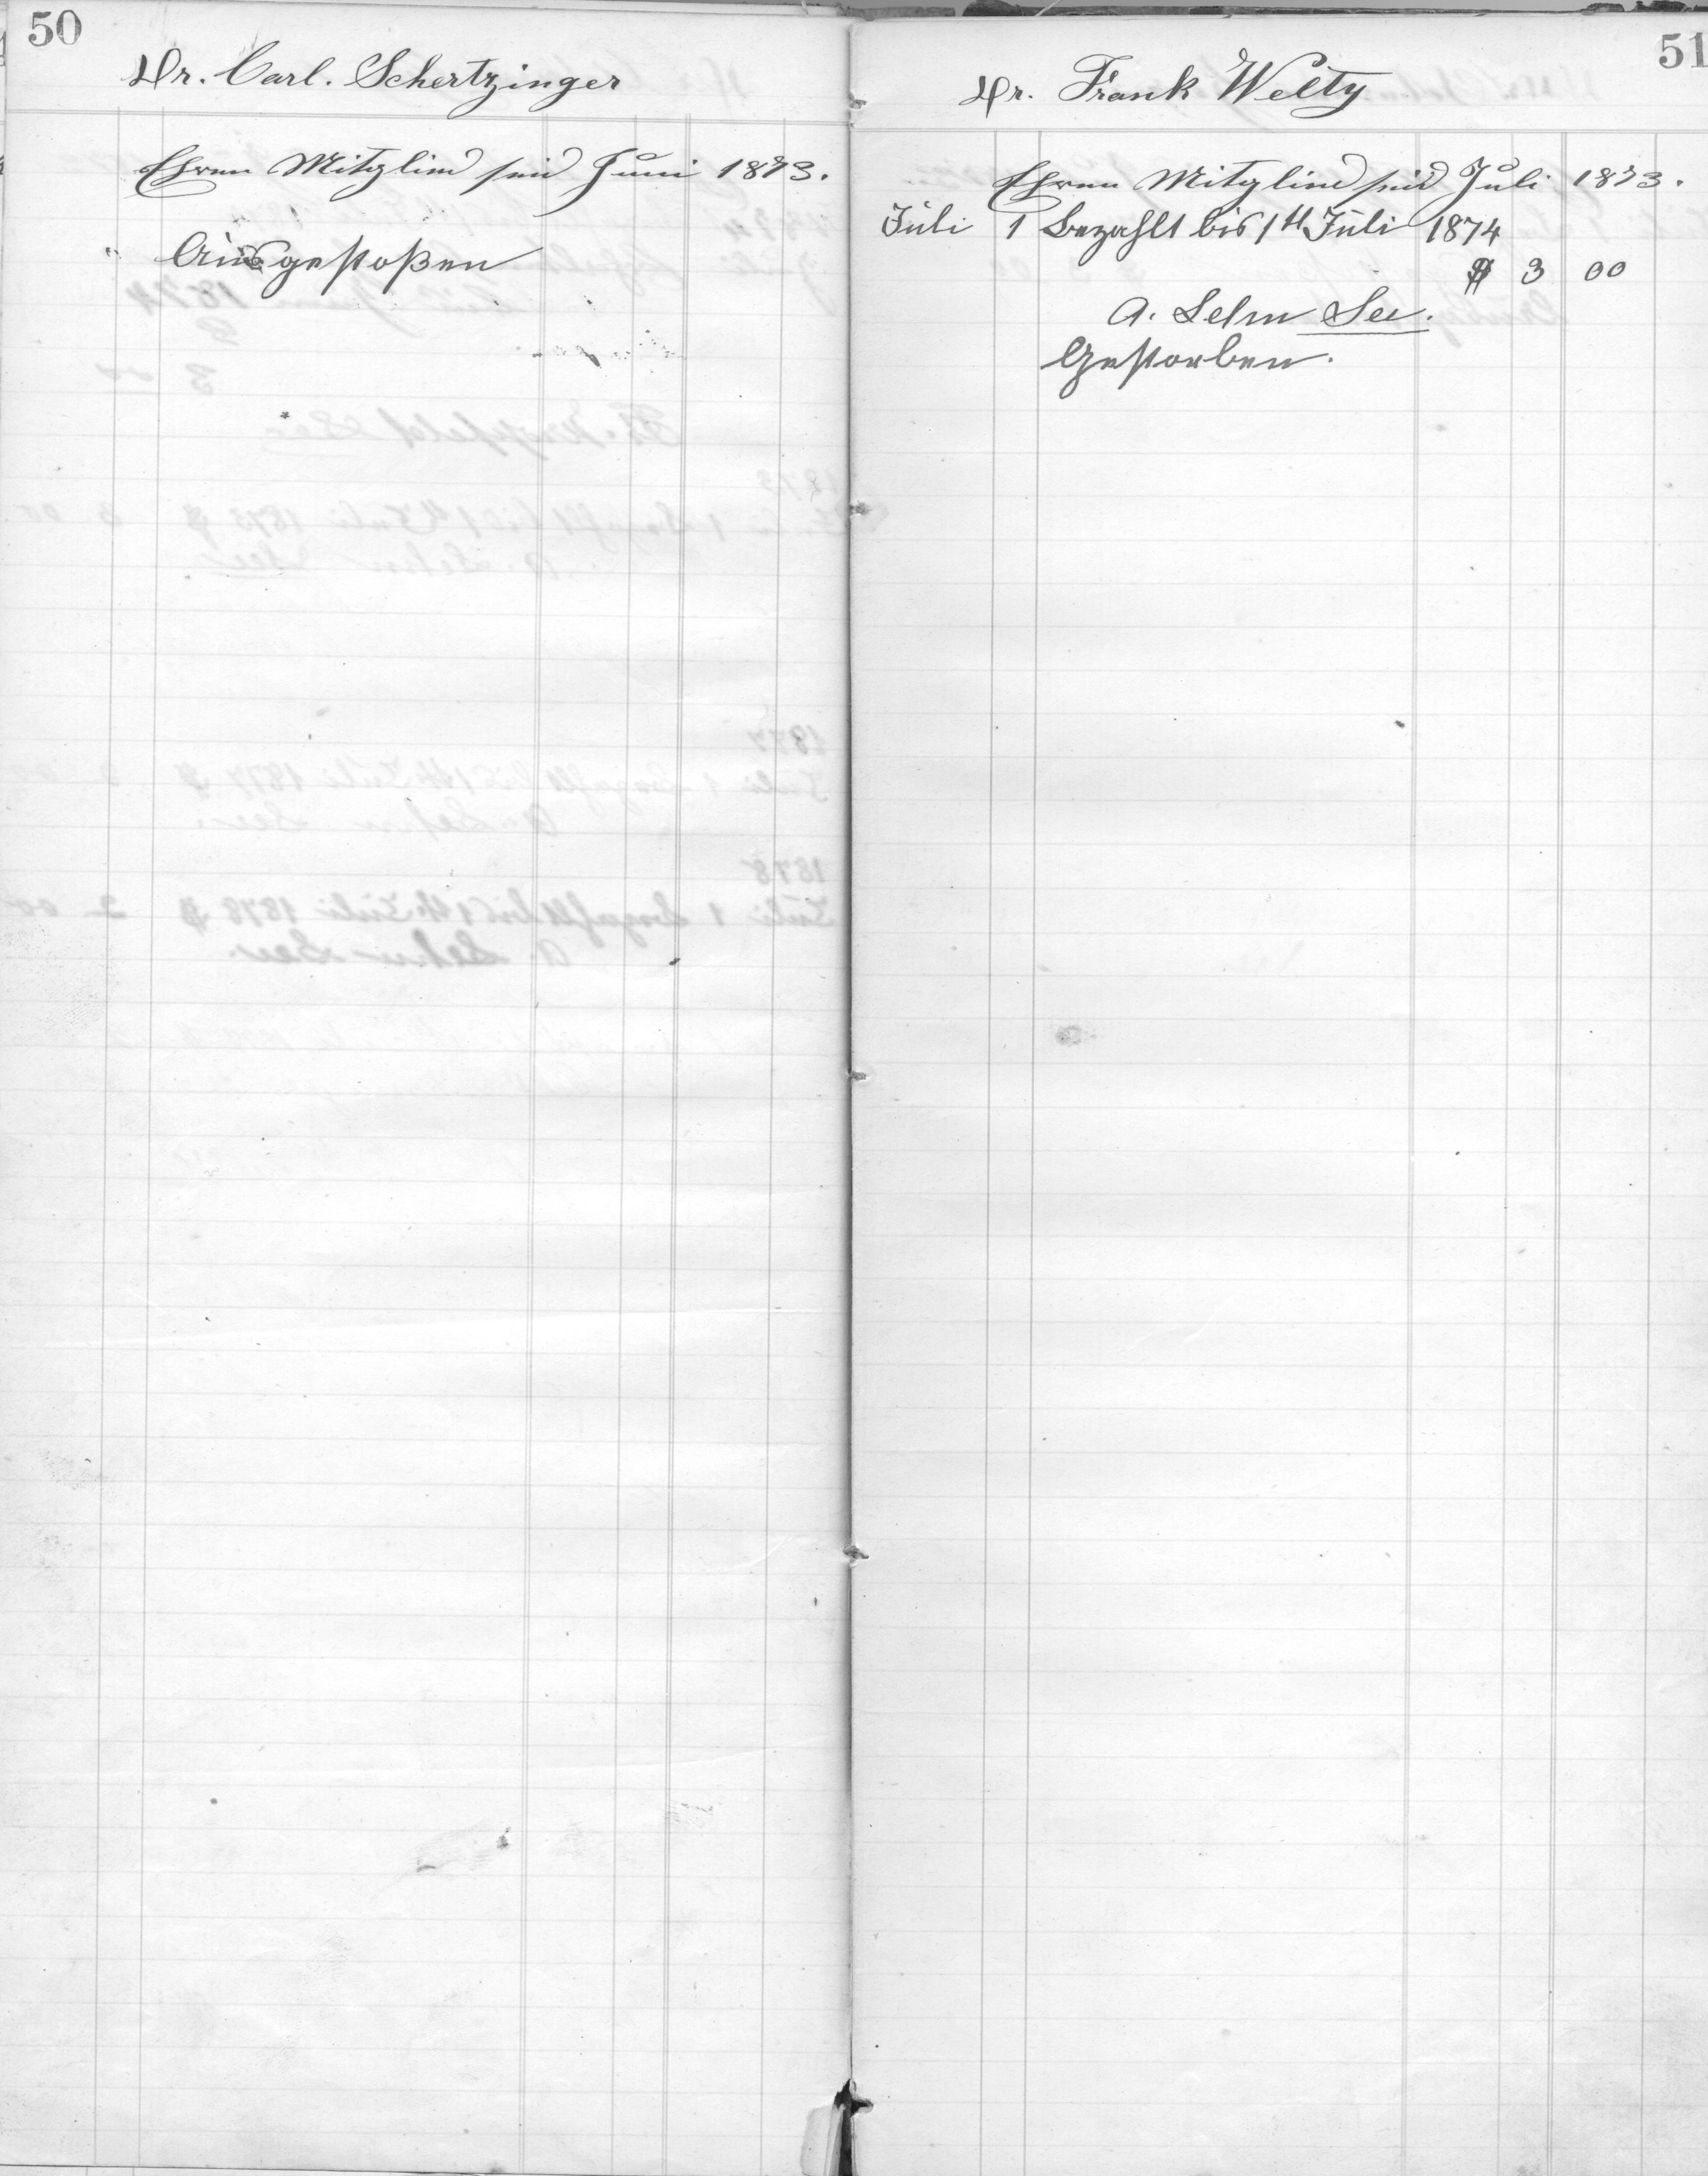 50
Dr. Carl. Schertzinger
Ehren Mitglied seid Juni 1873.
Ausgestoßen
51
Dr. Frank Welty
Ehren Mitglied seid Juli 1873.
Juli 1 Bezahlt bis 1st Juli 1874
$ 3 00
A. Sehn Sec.
Gestorben.